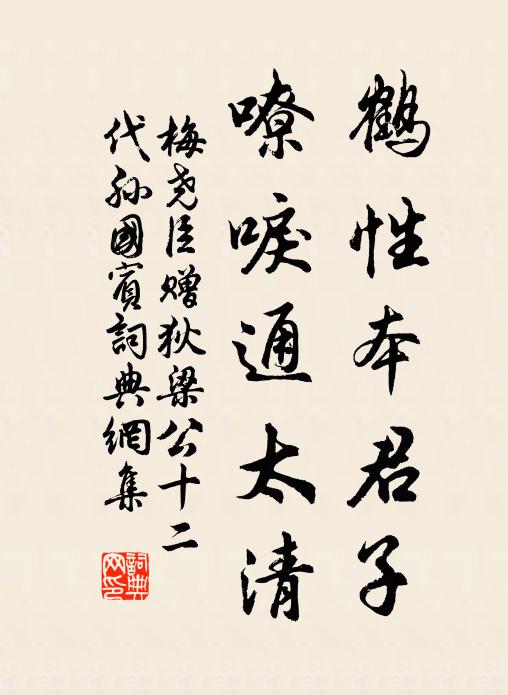 鶴性本君子
嘹唳通太清
梅堯臣贈狄梁公十二
代孫國賓詞典網集
詞典
网印